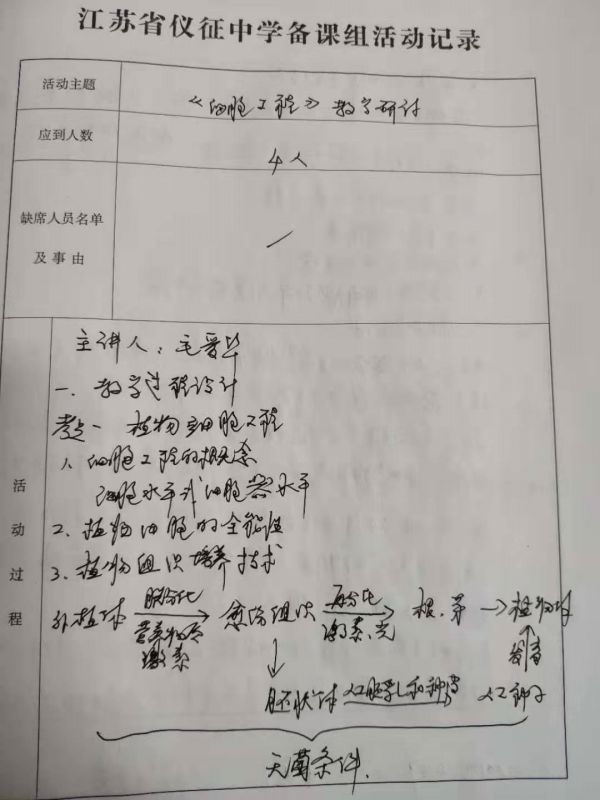 江苏省仪征中学备课组活动记录
活动主题
《细胞工程》教学研讨
应到人数
4人
缺席人员名单
及事由
/
活动过程
主讲人：毛
一、教学过程设计
考点一 植物细胞工程
1、细胞工程的概念
细胞水平或细胞器水平
2、植物细胞的全能性
3、植物组织培养技术
外植体 脱分化 愈伤组织 再分化 根、芽 → 植物体
营养物质 激素、光 发育
激素
胚状体 人工胚乳和种皮 人工种子
无菌条件.